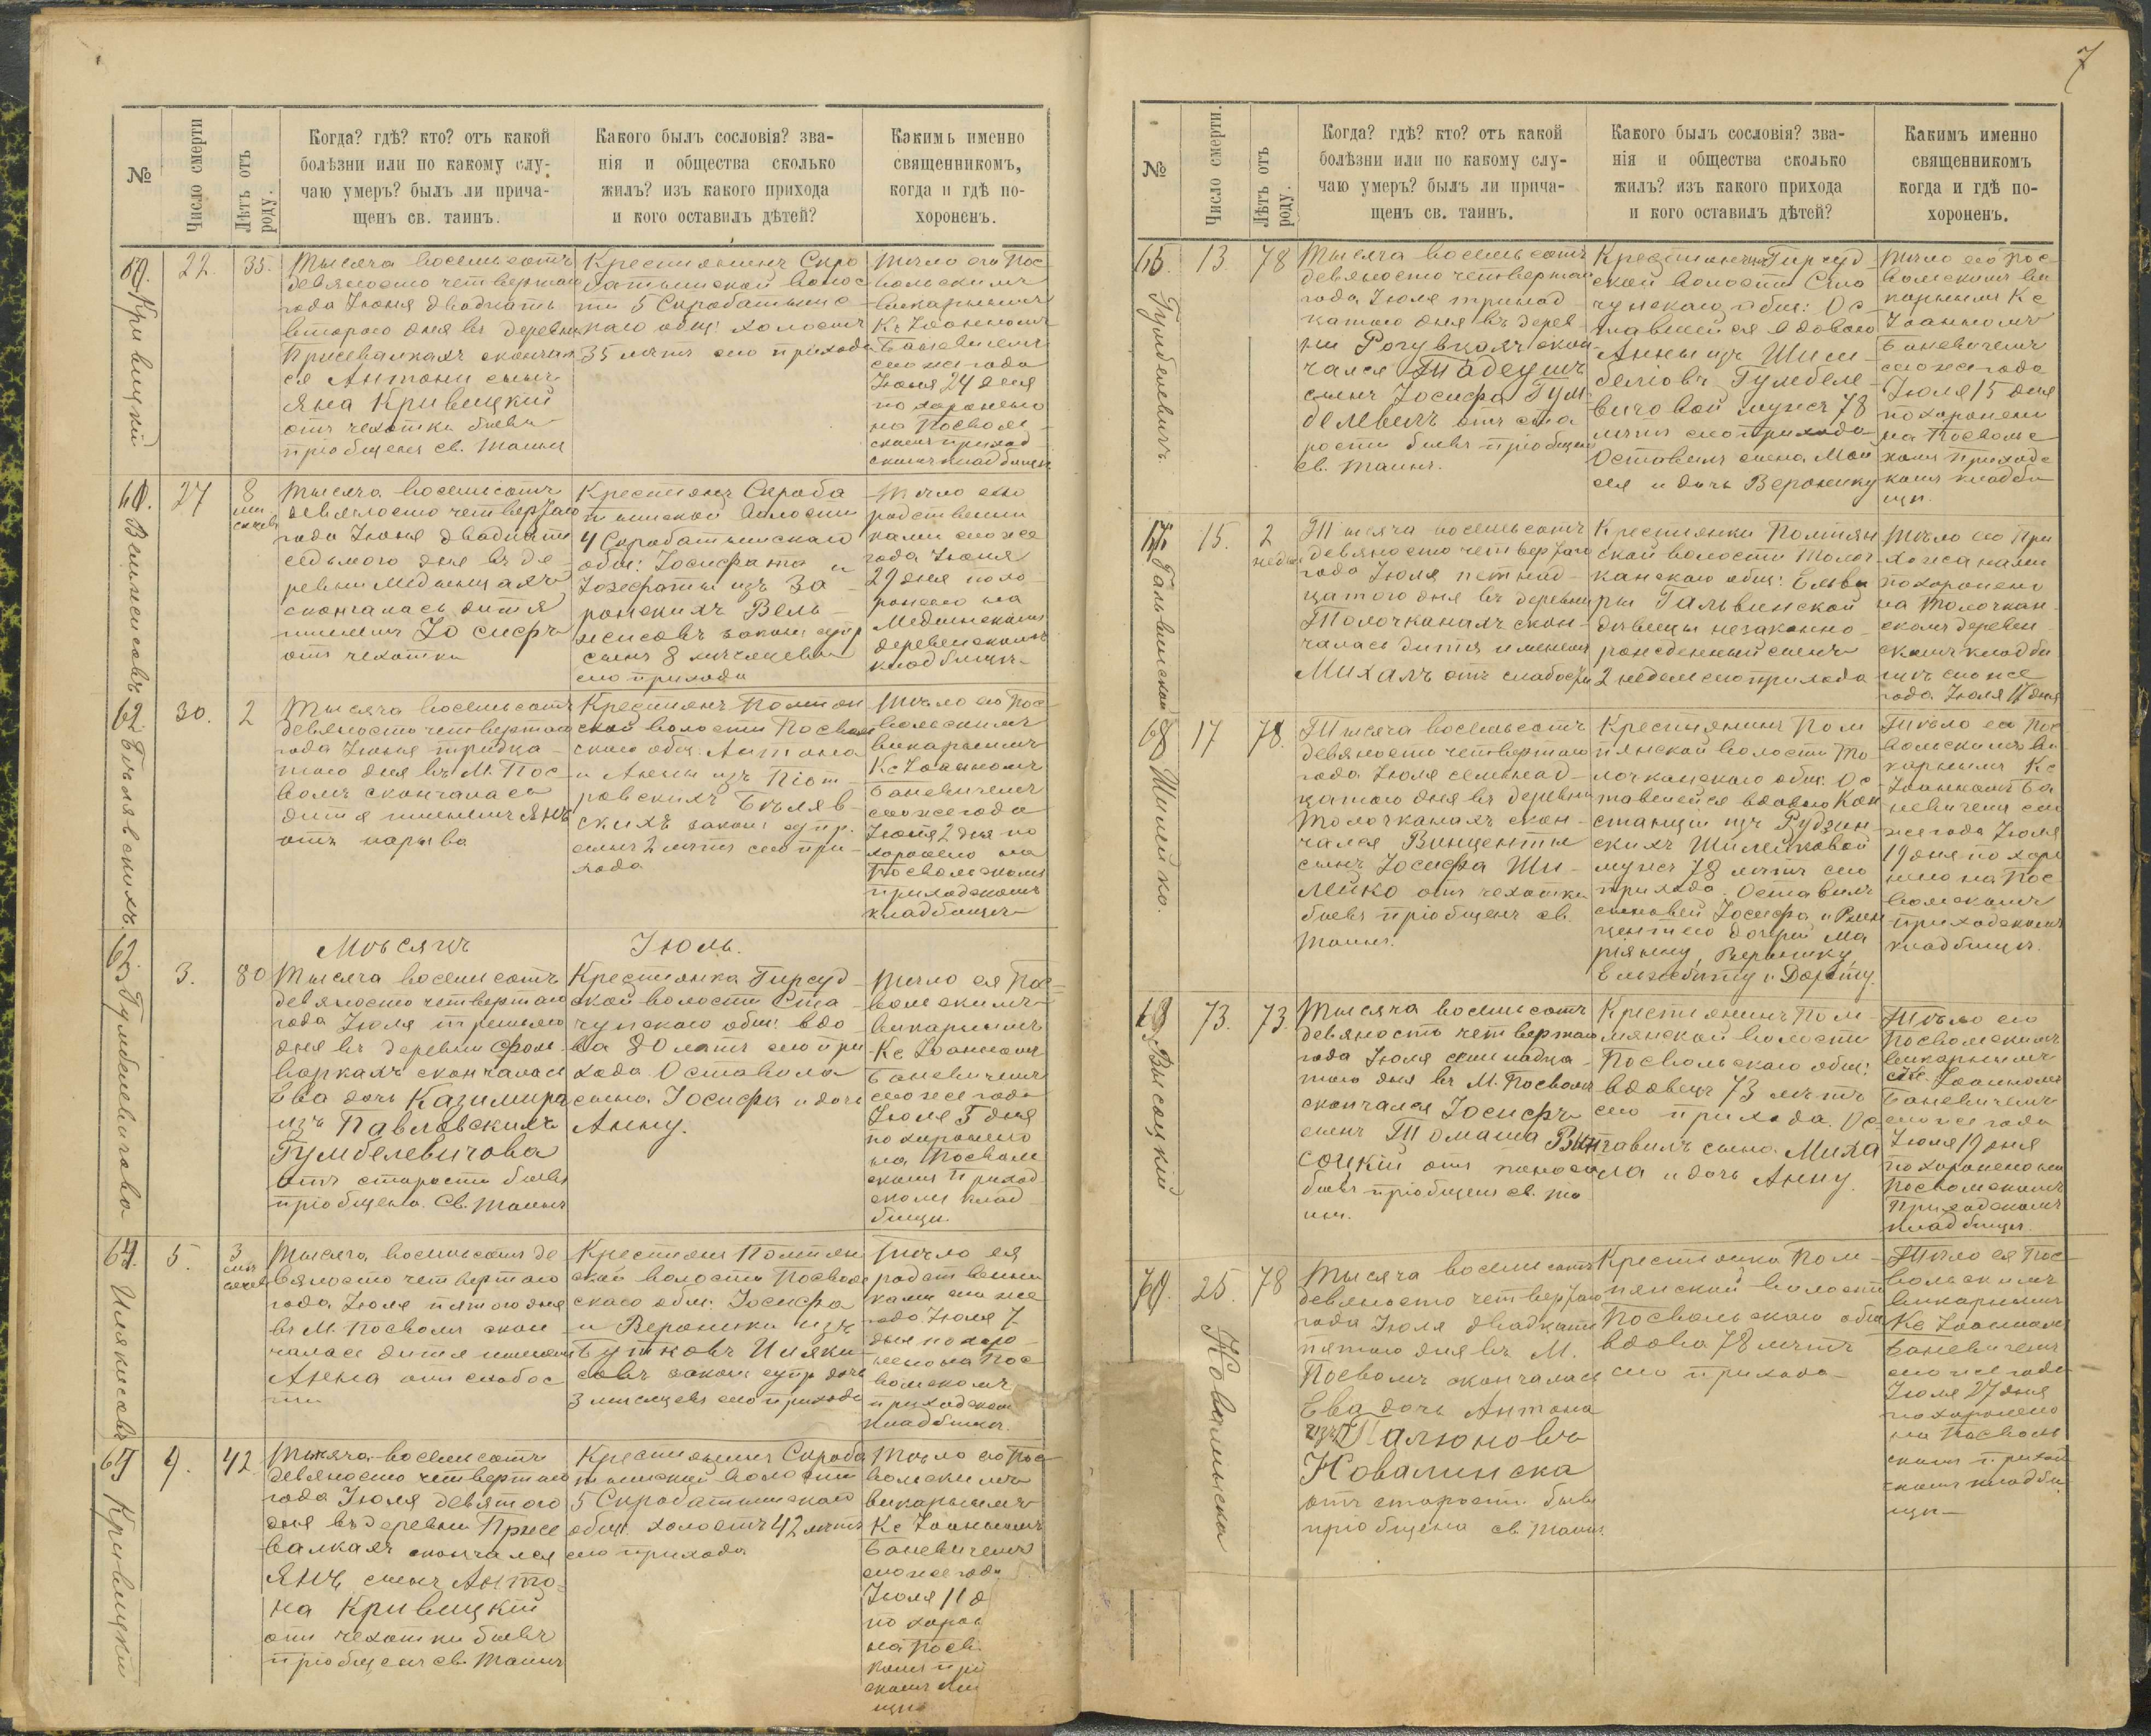 7
№
Число смерти
Лѣтъ отъ роду.
Когда? гдѣ? кто? отъ какой
болѣзни или по какому слу-
чаю умеръ? былъ ли прича-
щенъ св. таинъ.
Какого былъ сословія? зва-
нія и общества сколько
жилъ? изъ какого прихода
и кого оставилъ дѣтей?
Какимъ именно
священникомъ,
когда и гдѣ по-
хороненъ.
Кривицкій
22.
35.
Тысяча восемьсотъ
девяносто четвертаго
года Іюня двадцать
второго дня въ деревни
скончал
ся Антони сынъ
Яна Кривицкій
отъ чахотки бывъ
пріобщенъ св. Таинъ
Крестьянинъ Скро
батышской волос
ти 5 Скробатышс
каго общ: холостъ
35 лѣтъ сего прихода
Тѣло его Пос
вольскимъ
викарнымъ
Кс Іоанномъ
Баневичемъ
сего же года
Іюня 24 дня
похоронено
на Посволь
скомъ приход
скомъ кладбищи
61.
27
8
мѣ
сяцевъ
Тысяча восемьсотъ
девяносто четвертаго
года Іюня двадцать
седьмого дня въ де
ревни
скончалась дитя
именемъ Іосифъ
отъ чахотки
Крестьянъ Скроба
тышской волости
4 Скробатышскаго
общ: Іосифата и
Іозефаты изъ За
ронскихъ Вель
жисовъ закон: супр
сынъ 8 мѣсяцевъ
сего прихода
Тѣло его
родственни
ками сего же
года Іюня
29 дня похо
ронено на
деревенскомъ
кладбищи
62.
30.
2
Тысяча восемьсотъ
девяносто четвертаго
года Іюня тридца
таго дня въ М. Пос
волъ скончалась
дитя именемъ Янъ
отъ нарыва
Крестьянъ Помпян
ской волости Посволь
скаго общ. Антона
и Анны изъ Піот
ровскихъ Бѣляв
скихъ закон: супр.
сынъ 2 лѣтъ сего при-
хода
Тѣло его Пос
вольскимъ
викарнымъ
Кс Іоанномъ
Баневичемъ
сего же года
Іюля 2 дня по
хоронено на
Посвольскомъ
приходскомъ
кладбищи
Мѣсяцъ Іюль.
63
Гумбелевичова
3.
80
Тысяча восемьсотъ
девяносто четвертаго
года Іюля третьяго
дня въ деревни Фоль
варкахъ скончалась
Ева дочь Казимира
изъ Павловскихъ
Гумбелевичова
отъ старости бывъ
пріобщена св. Таинъ
Крестьянка Гирсуд
ской волости Ста
чунскаго общ: вдо
ва 80 лѣтъ сего при
хода Оставила
сына Іосифа и дочь
Анну.
Тѣло ея Пос
вольскимъ
викарнымъ
Кс Іоанномъ
Баневичемъ
сего же года
Іюля 5 дня
похоронено
на Посволь
скомъ приход
скомъ клад
бищи
64.
5.
3
мѣ
сяцевъ
Тысяча восемьсотъ де
вяносто четвертаго
года Іюля пятого дня
въ М. Посволъ скон
чалась дитя именемъ
Анна отъ слабос
ти
Крестьянъ Помпян
ской волости Посволь
скаго общ: Іосифа
и Вероники изъ
Бутковъ Иляки
совъ закон: супр дочь
3 мѣсяцевъ сего прихода
Тѣло ея
родственни
ками сего же
года Іюля 7
дня похоро
нено на Пос
вольскомъ
приходском
кладбищи
Кривицкій
9.
42
Тысяча восемьсотъ
девяносто четвертаго
года Іюля девятого
дня въ деревни
скончался
Янъ сынъ Анто
на Кривицкій
отъ чахотки бывъ
пріобщенъ св. Таинъ
Крестьянинъ Скроба
тышской волости
5 Скробатышскаго
общ. холостъ 42 лѣтъ
сего прихода
Тѣло его Пос
вольскимъ
викарнымъ
Кс Іоанномъ
Баневичемъ
сего же года
Іюля 11 д
похорон
на Посв
№
Число смерти.
Лѣтъ отъ роду.
Когда? гдѣ? кто? отъ какой
болѣзни или по какому слу-
чаю умеръ? былъ ли прича-
щенъ св. таинъ.
Какого былъ сословія? зва-
нія и общества сколько
жилъ? изъ какого прихода
и кого оставилъ дѣтей?
Какимъ именно
священникомъ
когда и гдѣ по-
хороненъ.
Гумбелевичъ.
13
78
Тысяча восемьсотъ
девяносто четвертаго
года Іюля тринад
цатого дня въ дерев
ни скон
чался Тадеушъ
сынъ Іосифа Гум
белевичъ отъ ста
рости бывъ пріобщенъ
св. Таинъ.
Крестьянинъ Гирсуд
ской волости Ста
чунскаго общ: Ос
тавшейся вдовою
Анны изъ
Гумбеле
вичовой мужъ 78
лѣтъ сего прихода
Оставилъ сына
и дочь Веронику
Тѣло его Пос
вольскимъ ви
карнымъ Кс
Іоанномъ
Баневичемъ
сего же года
Іюля 15 дня
похоронено
на Посвольс
комъ приходс
комъ кладби
щи.
Гальвинской
15.
2
недѣ
Тысяча восемьсотъ
девяносто четвертаго
года Іюля пятнад
цатого дня въ деревни
Толочканахъ скон
чалась дитя именемъ
Михалъ отъ слабости
Крестьянки Помпян
ской волости Толоч
канскаго общ: Ельви
ры Гальвинской
дѣвицы незаконно
рожденный сынъ
2 недѣль сего прихода
Тѣло его При
хожанами
похоронено
на Толочкан
скомъ деревен
скомъ кладби
щѣ сего же
года Іюля 17 дня
68
Шилейко.
17
78.
Тысяча восемьсотъ
девяносто четвертаго
года Іюля семьнад
цатого дня въ деревни
Толочканахъ скон
чался Винценты
сынъ Іосифа Ши
лейко отъ чахотки
бывъ пріобщенъ св.
Таинъ.
Крестьянинъ Пом
пянской волости То
лочканскаго общ: Ос
тавшейся вдовою Кон
станціи изъ Рудзин
скихъ Шилейковой
мужъ 78 лѣтъ сего
прихода. Оставилъ
сыновей Іосифа и Вин
центего дочерей Ма
ріянну, Веронику,
Ельжебету и Дороту.
Тѣло его Пос
вольскимъ ви
карнымъ Кс
Іоанномъ Ба
невичемъ сего
же года Іюля
19 дня похоро
нено на Пос
вольскомъ
приходскомъ
кладбищи.
69
Высоцкій
73.
73.
Тысяча восемьсотъ
девяносто четвертаго
года Іюля семнадца
таго дня въ М. Посволъ
скончался Іосифъ
сынъ Томаша Вы
соцкій отъ поноса
бывъ пріобщенъ св. Та
инъ.
Крестьянинъ Пом
пянской волости
Посвольскаго общ:
вдовецъ 73 лѣтъ
сего прихода. Ос
тавилъ сына Миха
ла и дочь Анну.
Тѣло его
Посвольскимъ
викарнымъ
Кс. Іоанномъ
Баневичемъ
сего же года
Іюля 19 дня
похоронено на
Посвольскомъ
Приходскомъ
кладбищи.
70.
Ковалинска
25.
78
Тысяча восемьсотъ
девяносто четвертаго
года Іюля двадцать
пятого дня въ М.
Посволъ скончалась
Ева дочь Антона
изъ Палюновъ
Ковалинска
отъ старости бывъ
пріобщена св. Таинъ.
Крестьянка Пом
пянской волости
Посвольскаго общ
вдова 78 лѣтъ
сего прихода
Тѣло ея Пос
вольскимъ
викарнымъ
Кс Іоанномъ
Баневичемъ
сего же года
Іюля 27 дня
похоронено
на Посволь
скомъ приход
скомъ кладби
щи